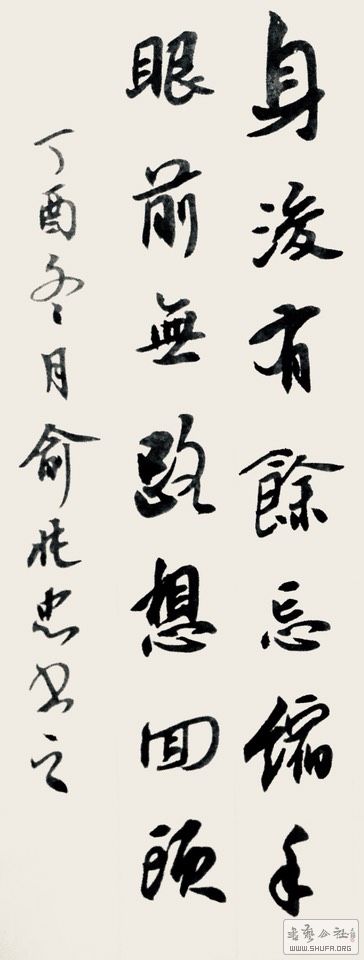 身後有餘忘縮手
眼前無路想回頭
丁酉冬月俞忠书之
书艺公社
WWW.SHUFA.ORG